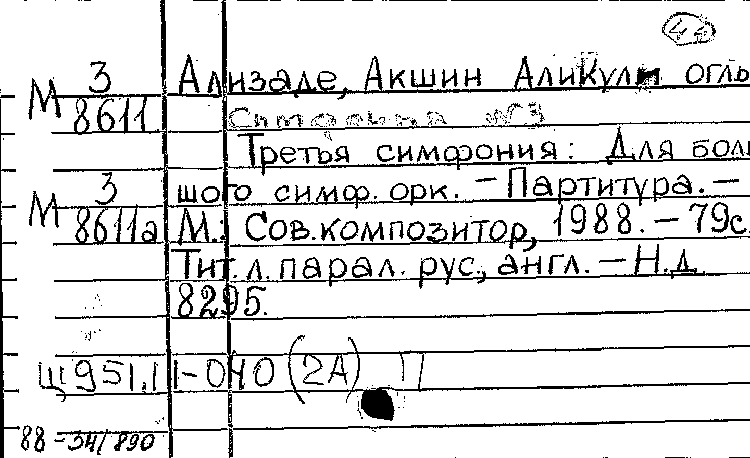 44
М 3/8611 Ализаде, Акшин Аликули оглы
Симфония №3
Третья симфония: Для боль
М 3/8611а шого симф. орк. – Партитура. –
М.: Сов.композитор, 1988. – 79с.
Тит.л.парал. рус., англ. – Н.д.
8295.
Щ951.11-040 (2А) П
88-34/890